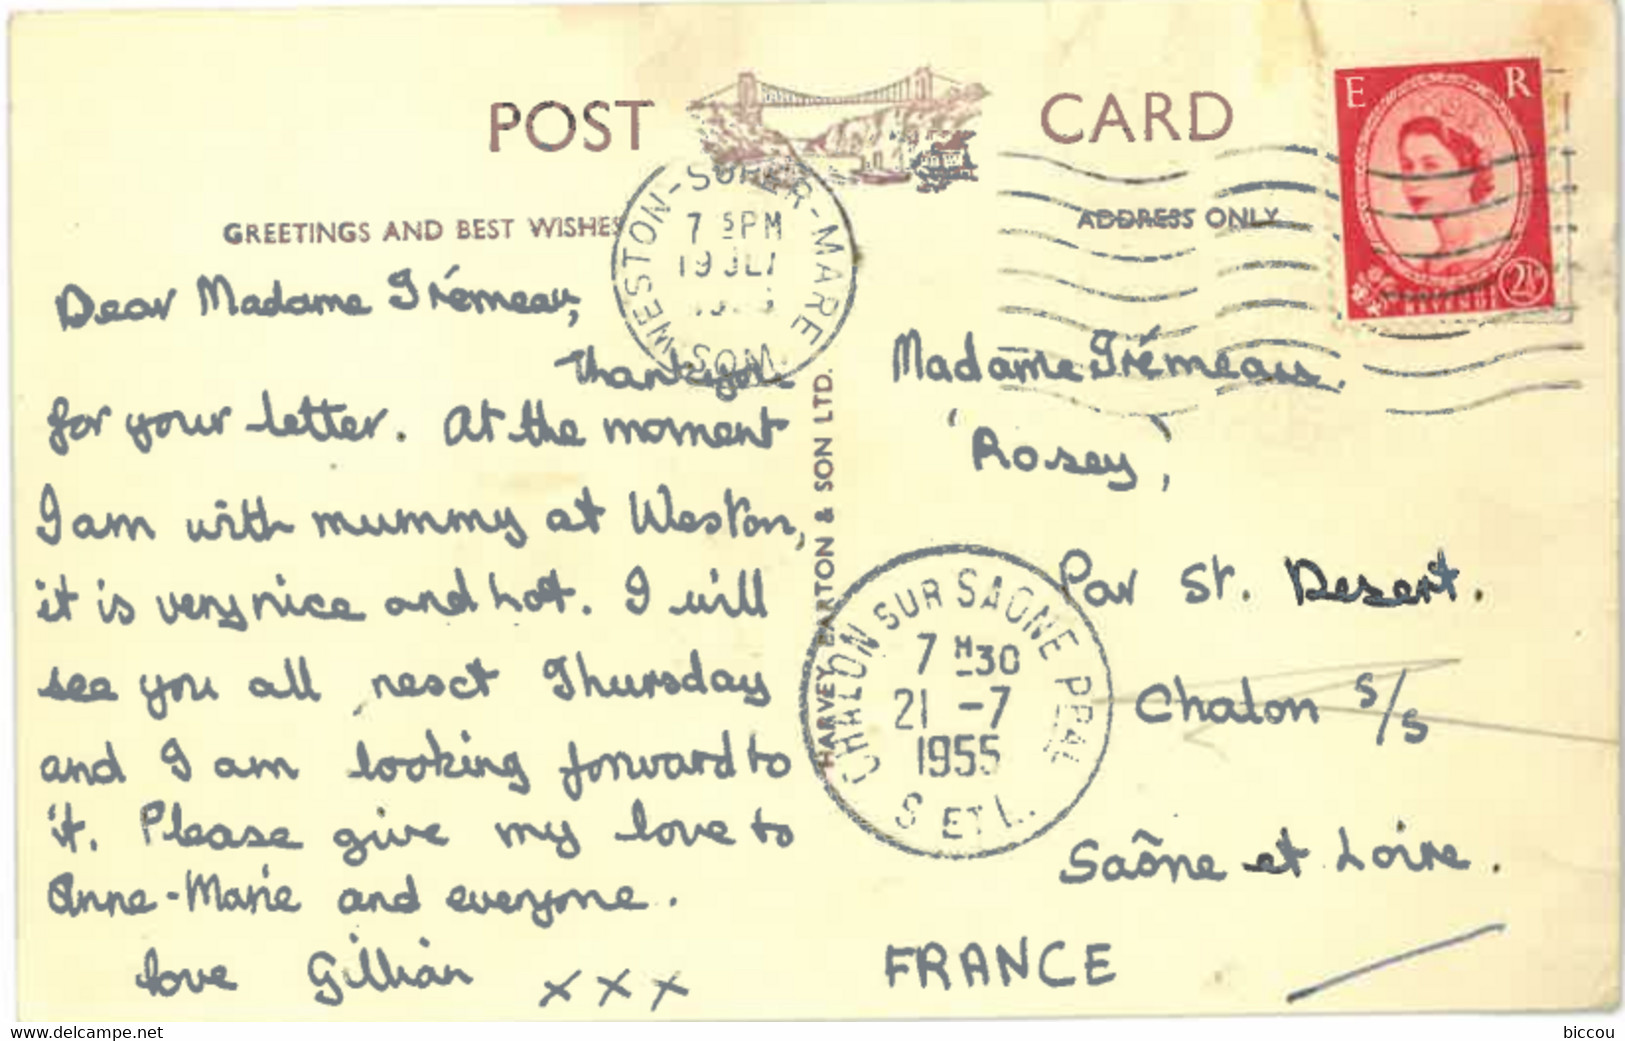 POST CARD
GREETINGS AND BEST WISHES
ADDRESS ONLY
E R
2½
WESTON-SUPER-MARE
7 15PM
19 JLY
SOM.
Dear Madame Trémeau,
Thankyou
for your letter. At the moment
I am with mummy at Weston,
it is very nice and hot. I will
see you all nesct Thursday
and I am looking forward to
it. Please give my love to
Anne-Marie and everyone.
love Gillian xxx
HARVEY BARTON & SON LTD.
Madame Trémeau.
'Rosey',
Par St. Desert.
Chalon s/s
Saône et Loire.
FRANCE
CHALON SUR SAONE PPAL
7 H30
21 -7
1955
S ET L.
www.delcampe.net
biccou